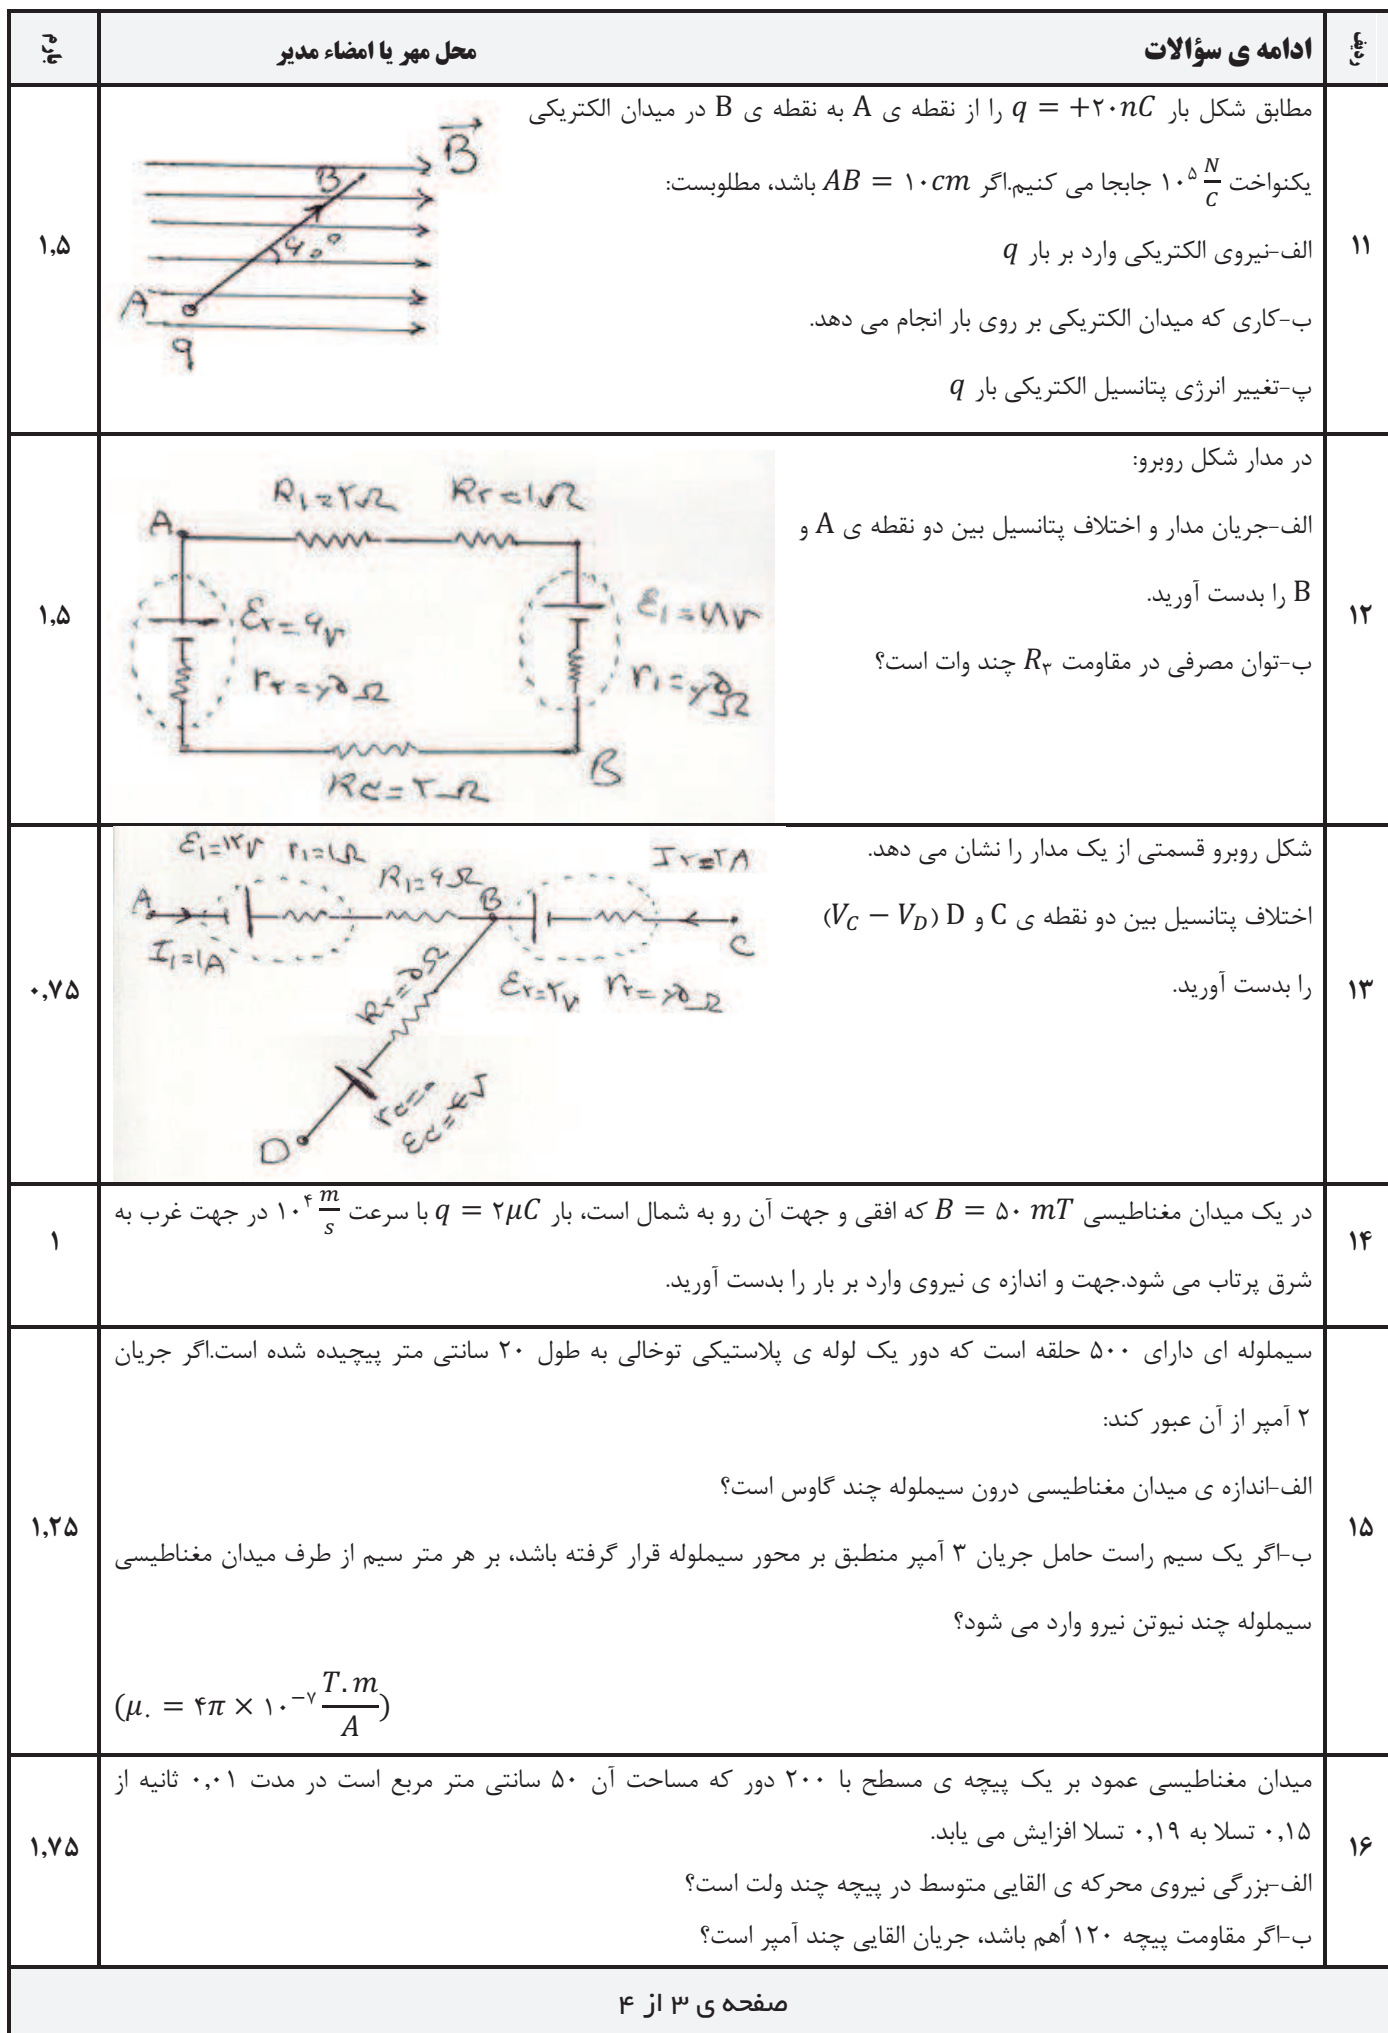 ردیف
ادامه ی سؤالات
محل مهر یا امضاء مدیر
بارم
۱۱
مطابق شکل بار q = +۲۰nC را از نقطه ی A به نقطه ی B در میدان الکتریکی
یکنواخت ۱۰^۵ N/C جابجا می کنیم.اگر AB = ۱۰cm باشد، مطلوبست:
الف-نیروی الکتریکی وارد بر بار q
ب-کاری که میدان الکتریکی بر روی بار انجام می دهد.
پ-تغییر انرژی پتانسیل الکتریکی بار q
B
B
۶۰°
A
q
۱,۵
۱۲
در مدار شکل روبرو:
الف-جریان مدار و اختلاف پتانسیل بین دو نقطه ی A و
B را بدست آورید.
ب-توان مصرفی در مقاومت R۳ چند وات است؟
R۱=۲Ω R۲=۱Ω
A
ε۲=۶v
ε۱=۱۸v
r۲=٫۵Ω
r۱=٫۵Ω
B
R۳=۲Ω
۱,۵
۱۳
شکل روبرو قسمتی از یک مدار را نشان می دهد.
اختلاف پتانسیل بین دو نقطه ی C و D (V_C − V_D)
را بدست آورید.
ε۱=۱۲v r۱=۱Ω
R۱=۶Ω
I۲=۲A
A
B
C
I۱=۱A
R۲=۵Ω
ε۲=۲v r۲=٫۵Ω
r۳=۰
ε۳=۴v
D
۰,۷۵
۱۴
در یک میدان مغناطیسی B = ۵۰ mT که افقی و جهت آن رو به شمال است، بار q = ۲μC با سرعت ۱۰^۴ m/s در جهت غرب به
شرق پرتاب می شود.جهت و اندازه ی نیروی وارد بر بار را بدست آورید.
۱
۱۵
سیملوله ای دارای ۵۰۰ حلقه است که دور یک لوله ی پلاستیکی توخالی به طول ۲۰ سانتی متر پیچیده شده است.اگر جریان
۲ آمپر از آن عبور کند:
الف-اندازه ی میدان مغناطیسی درون سیملوله چند گاوس است؟
ب-اگر یک سیم راست حامل جریان ۳ آمپر منطبق بر محور سیملوله قرار گرفته باشد، بر هر متر سیم از طرف میدان مغناطیسی
سیملوله چند نیوتن نیرو وارد می شود؟
(μ۰ = ۴π × ۱۰^−۷ T.m/A)
۱,۲۵
۱۶
میدان مغناطیسی عمود بر یک پیچه ی مسطح با ۲۰۰ دور که مساحت آن ۵۰ سانتی متر مربع است در مدت ۰,۰۱ ثانیه از
۰,۱۵ تسلا به ۰,۱۹ تسلا افزایش می یابد.
الف-بزرگی نیروی محرکه ی القایی متوسط در پیچه چند ولت است؟
ب-اگر مقاومت پیچه ۱۲۰ اُهم باشد، جریان القایی چند آمپر است؟
۱,۷۵
صفحه ی ۳ از ۴